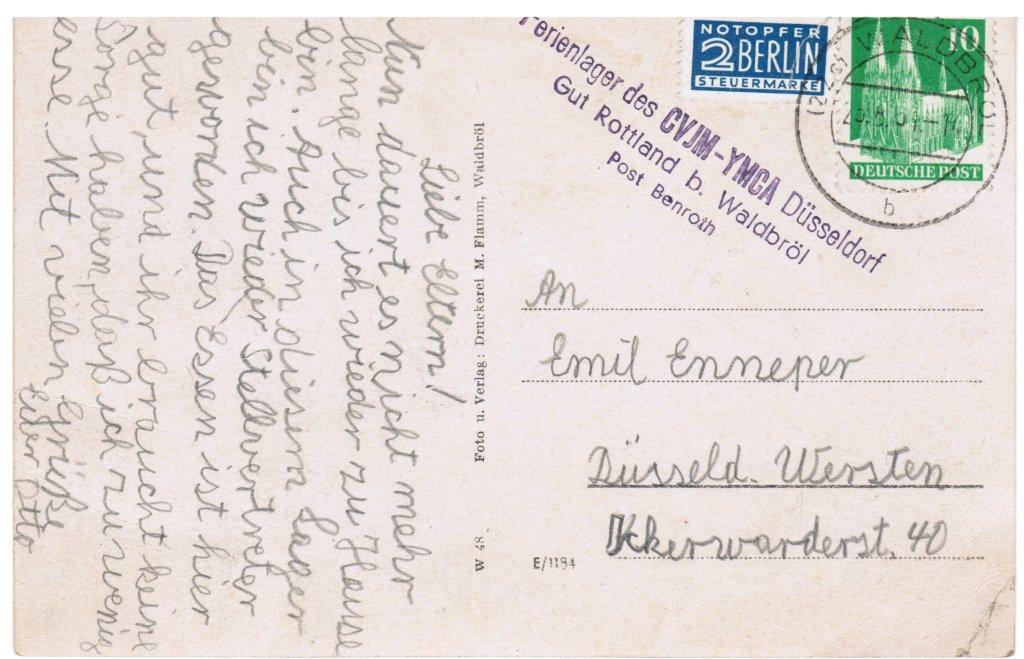 Liebe Eltern!
Nun dauert es nicht mehr
lange bis ich wieder zu Hause
bin. Auch in diesem Lager
bin ich wieder Stellvertreter
geworden. Das Essen ist hier
gut, und ihr braucht keine
Sorge haben, daß ich zu wenig
esse. Mit vielen Grüße
Euer Otto
Foto u. Verlag: Druckerei M. Flamm, Waldbröl
W 48
E/1184
Ferienlager des CVJM-YMCA Düsseldorf
Gut Rottland b. Waldbröl
Post Benroth
NOTOPFER
2 BERLIN
STEUERMARKE
10
DEUTSCHE POST
WALDBRÖL
b
An
Emil Enneper
Düsseld. Wersten
Ickerswarderst. 40